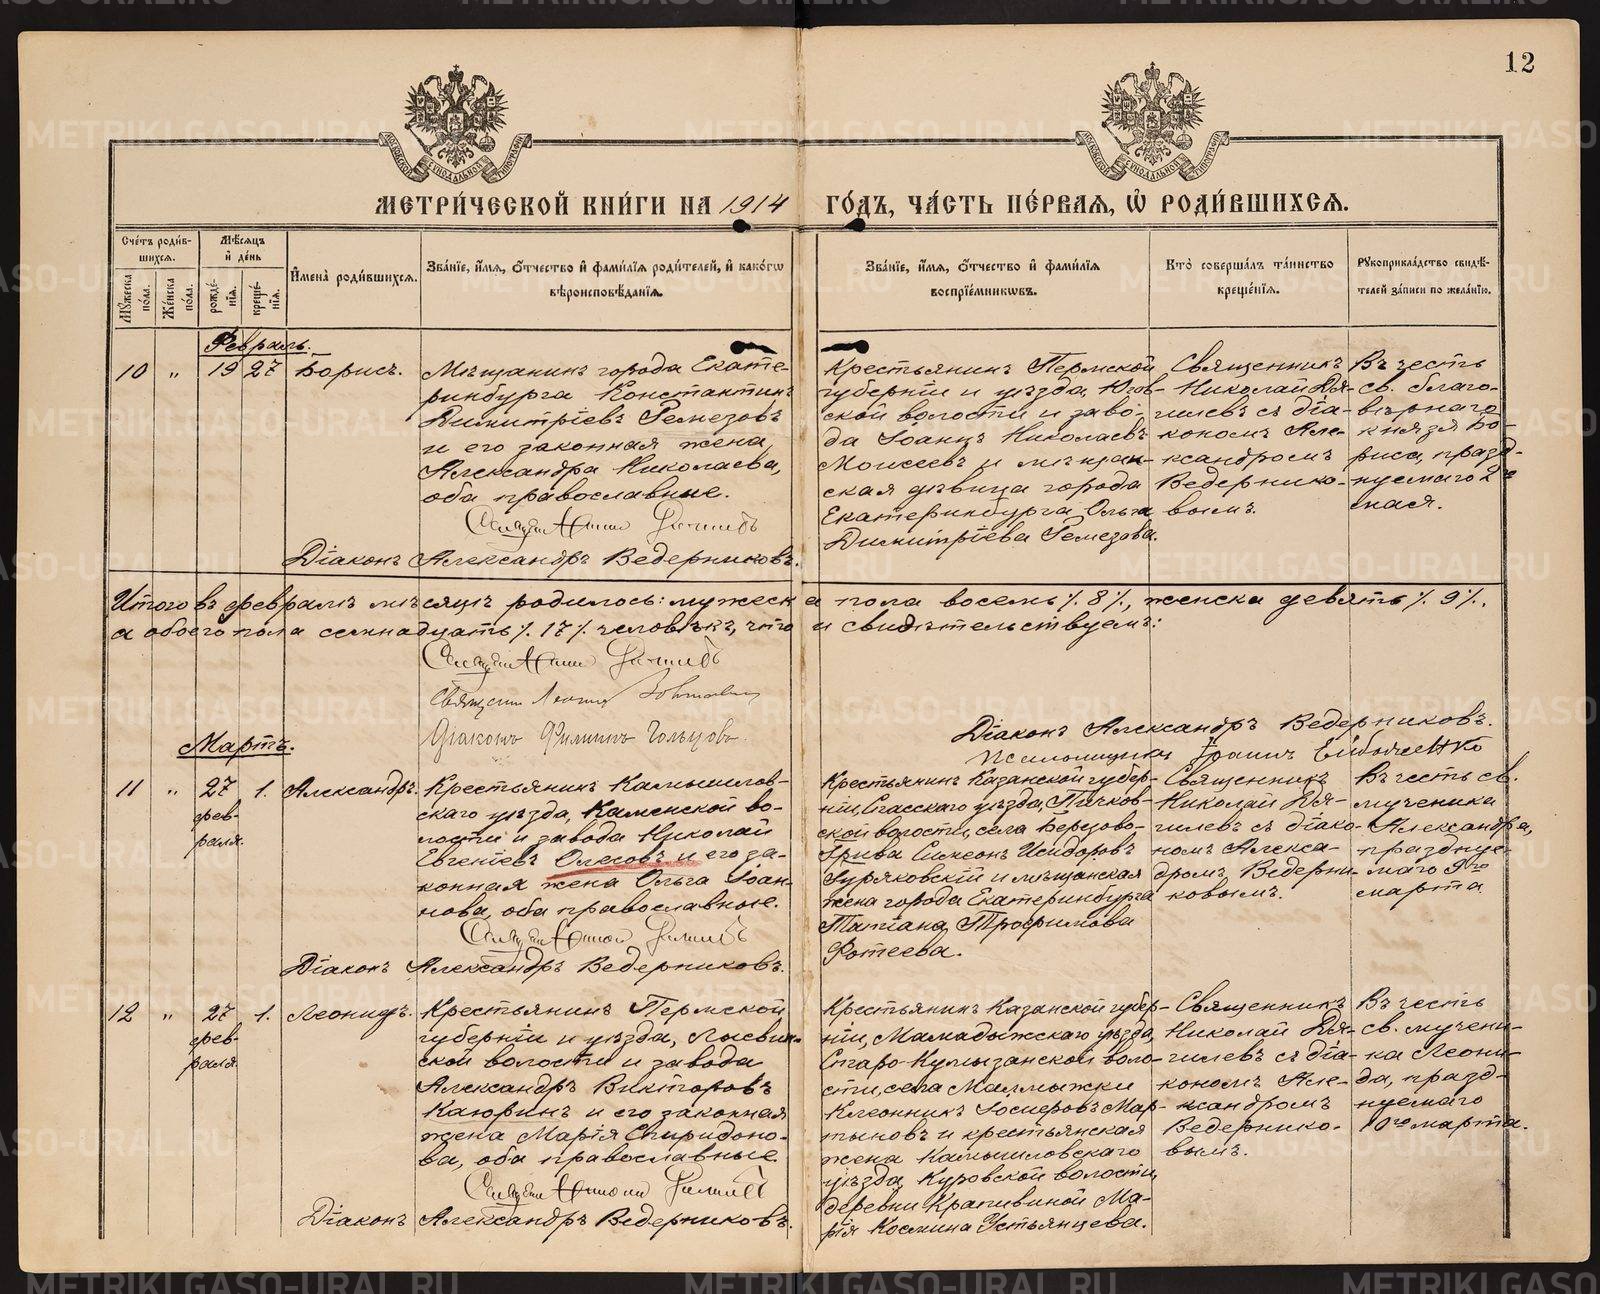 12
МОСКОВСКОЙ СѴНОДАЛЬНОЙ ТИПОГРАФІИ
МОСКОВСКОЙ СѴНОДАЛЬНОЙ ТИПОГРАФІИ
МЕТРИ́ЧЕСКОЙ КНИ́ГИ НА 1914 ГО́ДЪ, ЧА́СТЬ ПЕ́РВАЯ, Ѡ҆ РОДИ́ВШИХСЯ.
Сче́тъ роди́в-
шихся.
Мꙋ́жеска пола.
Же́нска по́ла.
Мѣ́сяцъ
и҆ де́нь
рожде́-
нїя.
креще́-
нїя.
И҆мена̀ роди́вшихся.
Зва́нїе, и҆́мя, ѻ҆́тчество и҆ фами́лїя роди́телей, и҆ како́гѡ
вѣроисповѣ́данїя.
Зва́нїе, и҆́мя, ѻ҆́тчество и҆ фами́лїя
воспрїе́мникѡвъ.
Кто̀ соверша́лъ та́инство
креще́нїя.
Рꙋкоприкла́дство свидѣ́-
телей за́писи по жела́нїю.
Февраль.
10 „ 19 27 Борисъ.
Мѣщанинъ города Екате-
ринбурга Константинъ
Димитріевъ Ремезовъ
и его законная жена,
Александра Николаева,
оба православные.
Діаконъ Александръ Ведерниковъ.
Крестьянинъ Пермской
губерніи и уѣзда, Югов-
ской волости и заво-
да Іоаннъ Николаевъ
Моисеевъ и мѣщан-
ская дѣвица города
Екатеринбурга Ольга
Димитріева Ремезова.
Священникъ
Николай Дя-
гилевъ съ діа-
кономъ Але-
ксандромъ
Ведернико-
вымъ.
Въ честь
св. благо-
вѣрнаго
князя Бо-
риса, празд-
нуемаго 2го
мая.
Итого въ февралѣ мѣсяцѣ родилось: мужеска пола восемь /. 8 /., женска девять /. 9 /.,
а обоего пола семнадцать /. 17 /. человѣкъ, что и свидѣтельствуемъ:
Діаконъ Филиппъ Гольцовъ.
Діаконъ Александръ Ведерниковъ.
Мартъ.
11 „ 27 фев-
раля. 1. Александръ.
Крестьянинъ Камышлов-
скаго уѣзда, Каменской во-
лости и завода Николай
Евгеніевъ Олесовъ и его за-
конная жена Ольга Іоан-
нова, оба православные.
Діаконъ Александръ Ведерниковъ.
Крестьянинъ Казанской губер-
ніи, Спасскаго уѣзда, Пичков-
ской волости, села Березово-
Грива Симеонъ Исидоровъ
Гуряковскій и мѣщанская
жена города Екатеринбурга
Татіана Трофимова
Фотеева.
Священникъ
Николай Дя-
гилевъ съ діако-
номъ Алекса-
дромъ Ведерни-
ковымъ.
Въ честь св.
мученика
Александра,
празднуе-
маго 9го
марта
12 „ 27 фев-
раля. 1. Леонидъ.
Крестьянинъ Пермской
губерніи и уѣзда, Лысвин-
ской волости и завода
Александръ Викторовъ
Каюринъ и его законная
жена Марія Спиридоно-
ва, оба православные
Діаконъ Александръ Ведерниковъ.
Крестьянинъ Казанской губер-
ніи, Мамадыжскаго уѣзда,
Старо-Кумызанской воло-
сти, села Малмыжки
Клеонникъ Іосифовъ Мар-
тыновъ и крестьянская
жена Камышловскаго
уѣзда, Куровской волости,
деревни Крапивиной Ма-
рія Космина Устьянцева.
Священникъ
Николай Дя-
гилевъ съ діа-
кономъ Але-
ксандромъ
Ведернико-
вымъ.
Въ честь
св. мучени-
ка Леони-
да, празд-
нуемаго
10го марта.
METRIKI.GASO-URAL.RU